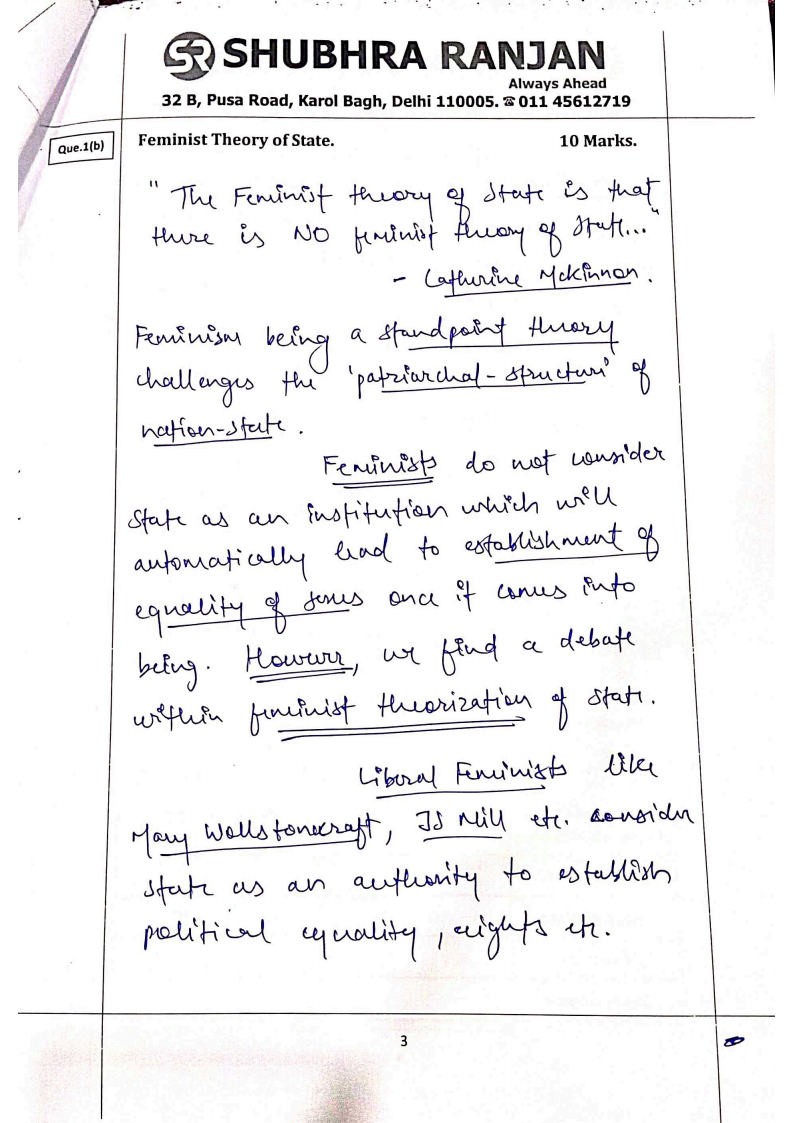 SR SHUBHRA RANJAN
Always Ahead
32 B, Pusa Road, Karol Bagh, Delhi 110005. ☎ 011 45612719
Que.1(b) Feminist Theory of State. 10 Marks.
" The Feminist theory of State is that
there is NO feminist theory of State..."
- Catherine McKinnon.
Feminism being a standpoint theory
challenges the 'patriarchal-structure' of
nation-state.
Feminists do not consider
State as an institution which will
automatically lead to establishment of
equality of sexes once it comes into
being. However, we find a debate
within feminist theorization of state.
Liberal Feminists like
Mary Wollstonecraft, JS Mill etc. consider
state as an authority to establish
political equality, rights etc.
3